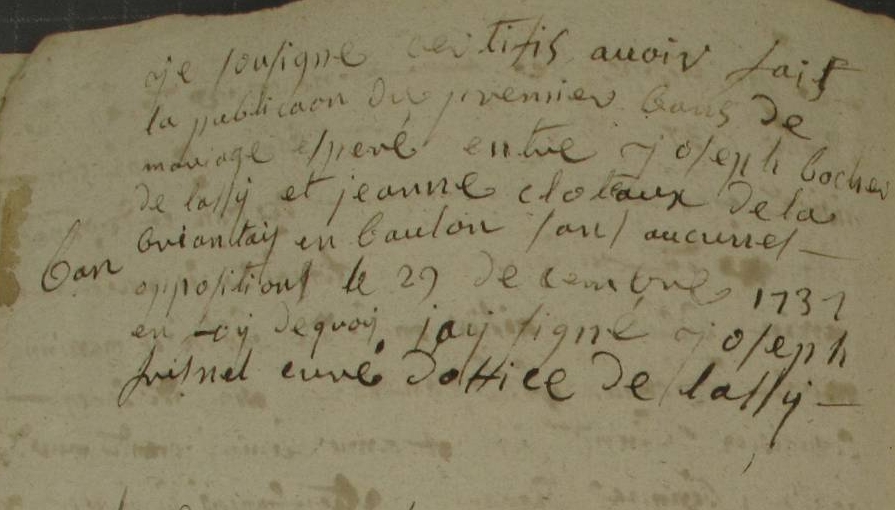 je sousigne certifis auoir fait
la publicaon du premier bans de
mariage esperé entre joseph bocher
de lassy et jeanne clotaux de la
briantais en baulon sans aucunes
ban oppositions le 29 decembre 1737
en foy dequoy jay signé joseph
curé doffice de lassy